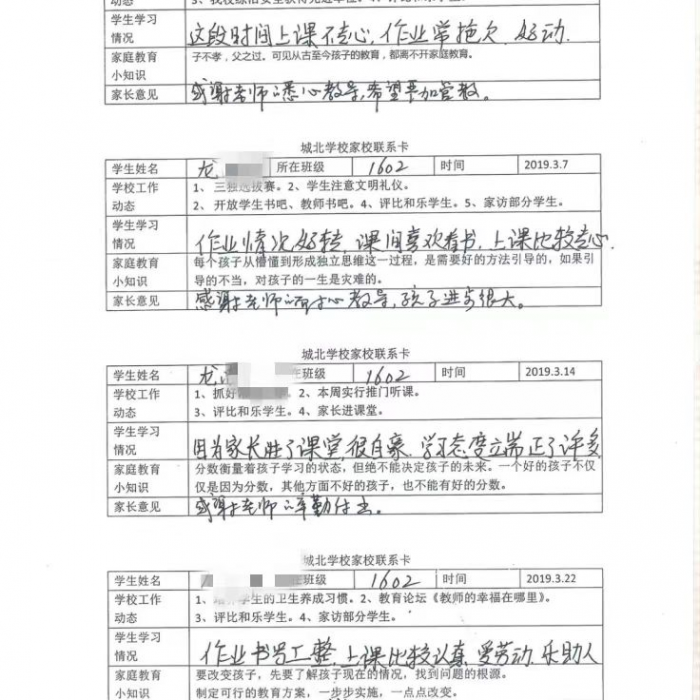 动态
学生学习 这段时间上课不专心,作业常拖欠.好动.
情况
家庭教育 子不孝，父之过。可见从古至今孩子的教育，都离不开家庭教育。
小知识
家长意见 感谢老师的悉心教导,希望严加管教。
城北学校家校联系卡
学生姓名 龙 所在班级 1602 时间 2019.3.7
学校工作 1、三独选拔赛。2、学生注意文明礼仪。
动态 2、开放学生书吧、教师书吧。4、评比和乐学生。5、家访部分学生。
学生学习
情况 作业情况好转,课间喜欢看书,上课比较专心.
家庭教育 每个孩子从懵懂到形成独立思维这一过程，是需要好的方法引导的，如果引
小知识 导的不当，对孩子的一生是灾难的。
家长意见 感谢老师的耐心教导,孩子进步很大。
城北学校家校联系卡
学生姓名 龙 在班级 1602 时间 2019.3.14
学校工作 1、抓好 。2、本周实行推门听课。
动态 3、评比和乐学生。4、家长进课堂。
学生学习
情况 因为家长进了课堂,很自豪,学习态度立端正了许多
家庭教育 分数衡量着孩子学习的状态，但绝不能决定孩子的未来。一个好的孩子不仅
小知识 仅是因为分数，其他方面不好的孩子，也不能有好的分数。
家长意见 感谢老师的辛勤付出。
城北学校家校联系卡
学生姓名 在班级 1602 时间 2019.3.22
学校工作 1、培养学生的卫生养成习惯。2、教育论坛《教师的幸福在哪里》。
动态 3、评比和乐学生。4、家访部分学生。
学生学习
情况 作业书写工整,上课比较认真,爱劳动,乐助人
家庭教育 要改变孩子，先要了解孩子现在的情况，找到问题的根源。
小知识 制定可行的教育方案，一步步实施，一点点改变。